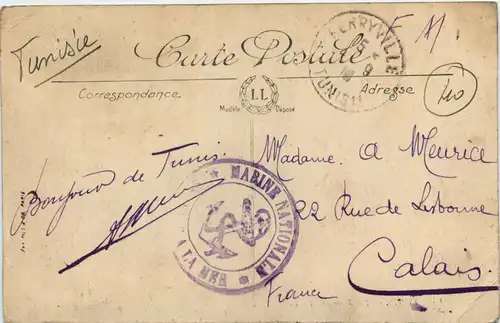 Tunisie
Carte Postale
F. M.
FERRYVILLE
TUNISIE
Correspondance
LL
Modèle Déposé
Adresse
Bonjour de Tunis.
MARINE NATIONALE
A LA MER
Madame A Meurice
22 Rue de Lisbonne
Calais
France